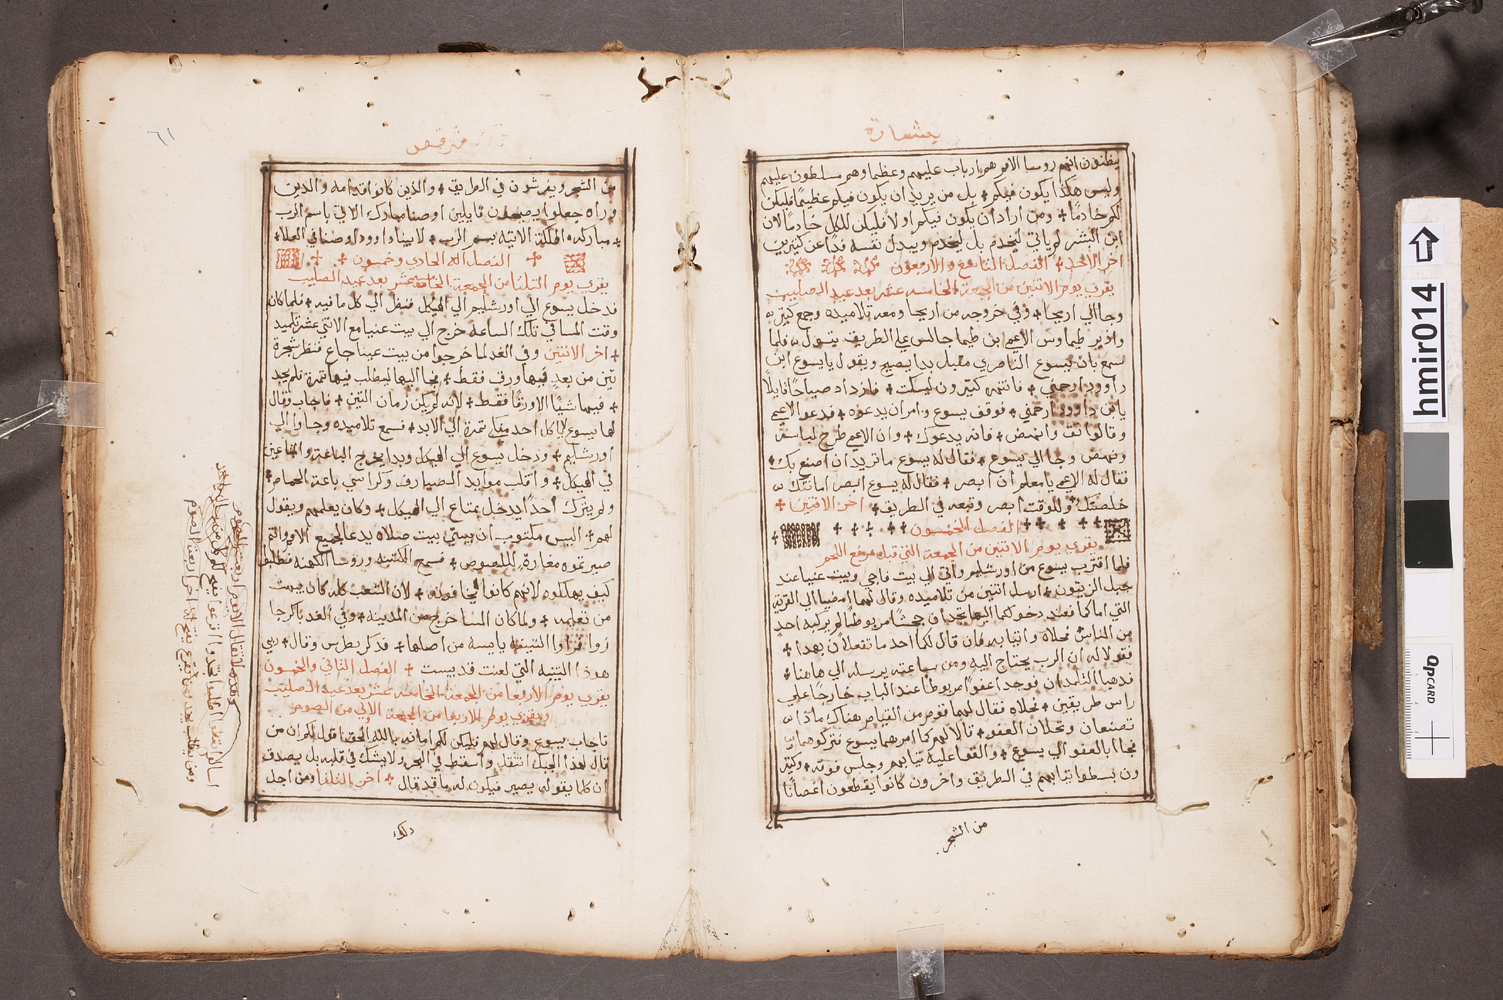 بشارة
يظنون انهم روسا الامم هم ارباب عليهم وعظماوهم مسلطون عليهم
وليس هكذا يكون فيكم + بل من يريد ان يكون فيكم عظيمًا فليكن
لكم خادمًا + ومن اراد ان يكون فيكم اولا فليكن للكل خادمًا لان
ابن البشر لم ياتي ليخدم بل ليخدم ويبدل نفسه فدًا عن كثيرين
اخر الاحد + الفصل التاسع والاربعون
يقرى يوم الاثنين من الجمعة الخامسه عشر بعد عيد الصليب
وجا الي اريحا + وفي خروجه من اريحا ومعه تلاميذه وجمع كثير
واذبر طيماوس الاعمي بن طيما جالس علي الطريق يتسول فلما
سمع بان يسوع الناصري مقبل بدا يصيح ويقول يا يسوع ابن
داوود ارحمني + فانتهره كثيرون ليسكت + فازداد صياحًا قايلًا
يا ابن داوود ارحمني + فوقف يسوع وامر ان يدعوه + فدعو الاعمي
وقالوا ثق وانهض + فانه يدعوك + وان الاعمي طرح لباسه
ونهض وجا الي يسوع + فقال له يسوع ما تريد ان اصنع بك +
فقال له الاعمي يا معلم ان ابصر + فقال له يسوع ابصر امانتك
خلصتك وللوقت ابصر وتبعه في الطريق + اخر الاثنين +
الفصل الخمسون + + + +
يقرى يوم الاثنين من الجمعة التي قبل مرفع اللحم
فلما اقترب يسوع من اورشليم واتى الي بيت فاجي وبيت عنيا عند
جبل الزيتون + ارسل اثنين من تلاميذه وقال لهما امضيا الي القرية
التي امامكما فعند دخولكما اليها تجدان جحشًا مربوطًا لم يركبه احد
من الناس فحلاه واتيا به فان قال لكما احد ما تفعلان بهذا +
فقولا له ان الرب يحتاج اليه ومن ساعته يرسله الي هاهنا +
فذهبا التلميذان فوجدا عفوًا مربوطًا عند الباب خارجًا علي
راس طريقين + فحلاه فقال لهما قوم من القيام هناك ماذا
تصنعان وتحلان العفو + قالا لهم كما امرهما يسوع فتركوهما
فجا ابالعفو الي يسوع + والقوا عليه ثيابهم وجلس فوقه + وكثير
ون بسطوا ثيابهم في الطريق واخرون كانوا يقطعون اغصانًا
من الشجر
مرقص
من الشجر ويفرشون في الطريق + والذين كانوا قدامه والذين
وراه جعلوا يصيحون قايلين اوصنا مبارك الاتي باسم الرب
+ مباركه المملكة الاتيه بسم الرب + لابينا داوود اوصنا في العلا +
الفصل الحادي وخمسون + +
يقرى يوم الثلثا من الجمعة الخامسة عشر بعد عيد الصليب
فدخل يسوع الي اورشليم الي الهيكل فنظر الي كل ما فيه + فلما كان
وقت المسا في تلك الساعة خرج الي بيت عنيا مع الاثني عشر تلميذ
+ اخر الاثنين وفي الغد لما خرجوا من بيت عنيا جاع فنظر شجرة
تين من بعد فيها ورق فقط + فجا اليها ليطلب فيها ثمرة فلم يجد
+ فيها شيًا الا ورقًا فقط + لانه لم يكن زمان التين + فاجاب وقال
لها يسوع لا ياكل احد منك ثمرة الي الابد + فسمع تلاميذه وجاوا الي
اورشليم + ودخل يسوع الي الهيكل وبدا يخرج الباعة والمبتاعين
في الهيكل + واقلب موايد الصيارف وكراسي باعة الحمام +
ولم يترك احدًا يدخل بمتاع الي الهيكل + وكان يعلمهم ويقول
لهم + اليس مكتوب ان بيتي بيت صلاه يدعا لجميع الامم وانتم
صيرتموه مغارة للصوص + فسمع الكتبه وروسا الكهنة فطلبوا
كيف يهلكوه لانهم كانوا يخافونه + لان الشعب كله كان يبهت
من تعليمه + ولما كان المسا خرج من المدينه + وفي الغد باكر جا
زوا فراوا التينه يابسه من اصلها + فذكر بطرس وقال + ربي
هوذا التينه التي لعنت قد يبست + الفصل الثاني والخمسون
يقرى يوم الاربعا من الجمعة الخامسه عشر بعد عيد الصليب
ويقرى يوم الاربعا من الجمعة الاولي من الصوم
فاجاب يسوع وقال لهم فليكن لكم امانه بالله الحق اقول لكم ان من
قال لهذا الجبل انتقل واسقط في البحر ولا يشك في قلبه بل يصدق
ان كلما يقوله يصير فيكون له ما قد قال + اخر الثلثا ومن اجل
ذلك
٦١
hmir014
QpCARD